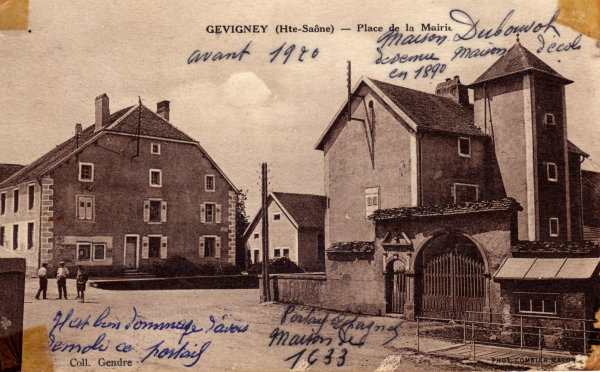 GEVIGNEY (Hte-Saône) — Place de la Mairie
avant 1920
maison Dubouvot
devenue maison d'école
en 1890
Il est bien dommage d'avoir
demoli ce portail
Portail Espagnol
Maison de
1633
Coll. Gendre
PHOT. COMBIER MACON